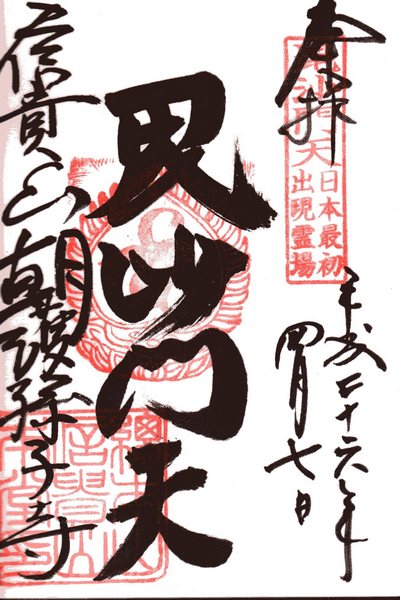 奉拝
毘沙門天
日本最初
出現霊場
平成二十六年
四月七日
毘沙門天
信貴山朝護孫子寺